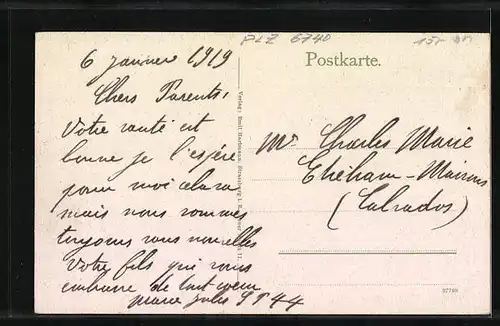 PLZ 6740
6 janvier 1919
Postkarte.
Chers Parents,
Votre santé est
bonne je l'espère
pour moi cela va
mais nous sommes
toujours sans nouvelles
Votre fils qui vous
embrasse de tout coeur
Marie Jules 9 1 44
Mr Charles Marie
Etréham-Maisons
(Calvados)
Verlag: Emil Hartmann, Strassburg i. E.
37799